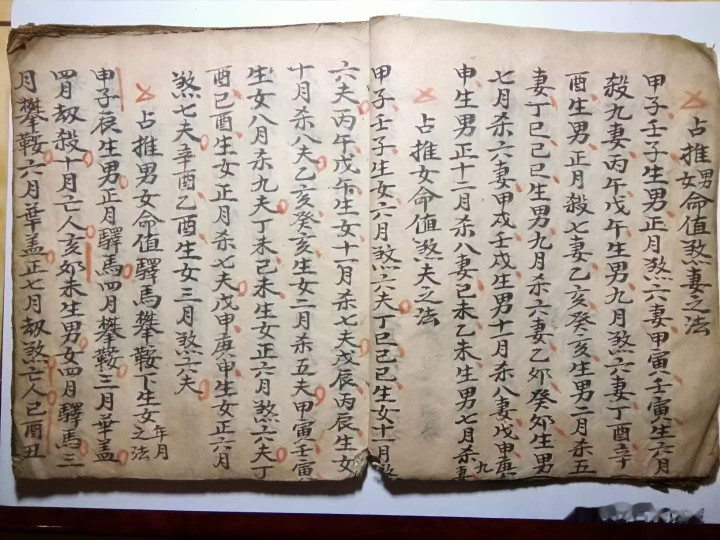 占推男女命值煞妻之法
甲子壬子生男正月煞六妻甲寅壬寅生六月
殺九妻丙午戊午生男九月煞六妻丁酉辛
酉生男正月殺七妻乙亥癸亥生男二月杀五
妻丁巳己巳生男九月杀六妻乙卯癸卯生男一
七月杀六妻甲戌壬戌生男十月杀八妻戊申庚
申生男正十二月杀八妻己未乙未生男七月杀妻九
占推女命值煞夫之法
甲子壬子生女六月煞六夫丁巳己巳生女十一月煞
六夫丙午戊午生女十一月杀七夫戊辰丙辰生女
十月杀八夫乙亥癸亥生女二月杀五夫甲寅壬寅
生女八月杀九夫丁未己未生女正六月煞六夫丁
酉己酉生女正月杀七夫戊申庚申生女正六月
煞七夫辛酉乙酉生女三月煞六夫
占推男女命值驛馬攀鞍下生女年月之法
申子辰生男正月驛馬四月攀鞍三月華盖
四月刼殺十月亡人亥卯未生男女四月驛馬三
月攀鞍六月華盖正七月刼煞亡人巳酉丑